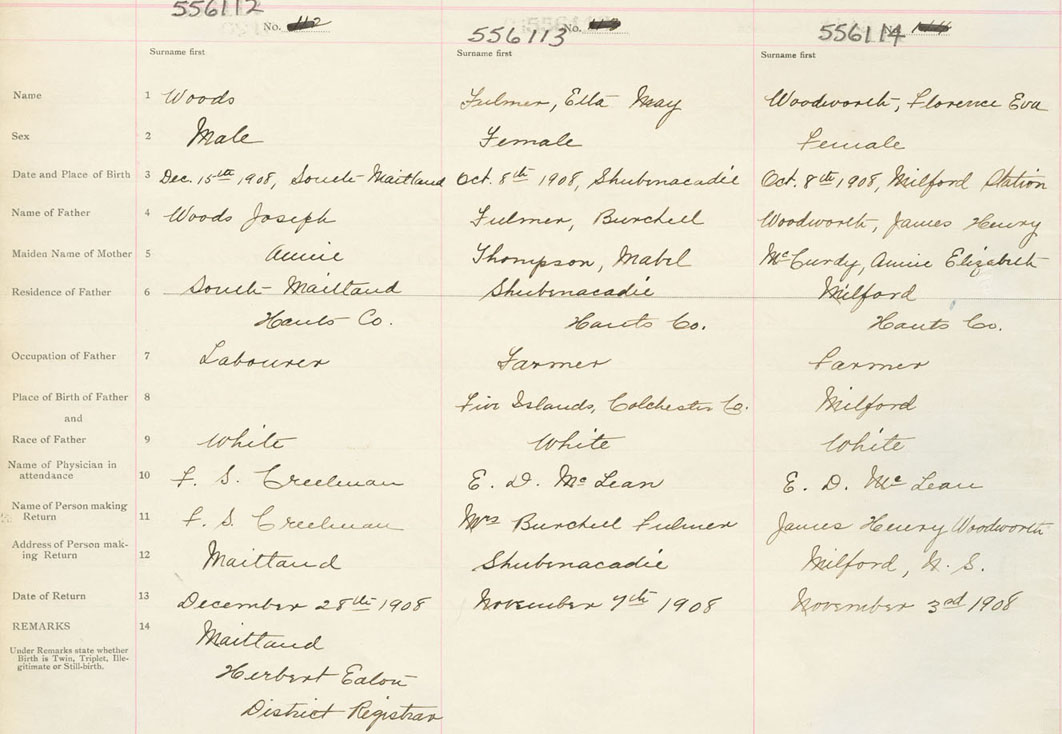 556112 556113 556114
No. 112 No. No.
Surname first Surname first Surname first
Name 1 Woods Fulmer, Etta May Woodworth, Florence Eva
Sex 2 Male Female Female
Date and Place of Birth 3 Dec. 15th 1908, South Maitland Oct. 8th 1908, Shubenacadie Oct. 8th 1908, Milford Station
Name of Father 4 Woods Joseph Fulmer, Burchell Woodworth, James Henry
Maiden Name of Mother 5 Annie Thompson, Mabel McCurdy, Annie Elizabeth
Residence of Father 6 South Maitland Shubenacadie Milford
Hants Co. Hants Co. Hants Co.
Occupation of Father 7 Labourer Farmer Farmer
Place of Birth of Father 8 Five Islands, Colchester Co. Milford
and
Race of Father 9 White White White
Name of Physician in
attendance 10 F. S. Creelman E. D. McLean E. D. McLean
Name of Person making
Return 11 F. S. Creelman Mrs Burchell Fulmer James Henry Woodworth
Address of Person mak-
ing Return 12 Maitland Shubenacadie Milford, N. S.
Date of Return 13 December 28th 1908 November 7th 1908 November 3rd 1908
REMARKS 14 Maitland
Under Remarks state whether
Birth is Twin, Triplet, Ille-
gitimate or Still-birth.
Herbert Eaton
District Registrar